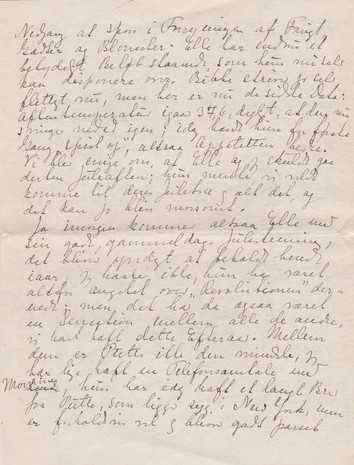 Nedgang at spore i Forsyningen af Frugt,
Gadser og Blomster. Elle har endnu et
betydeligt Beløb staaende, som hun nu selv
kan disponere over. Bibbe skriver jo selv
flittigt nu, men her er nu de sidste Data:
Aftentemperatur igaar 37,6,
springe nedad igen; idag havde hun for første
Gang spist op, altsaa Appetitten bedre.
Vi blev enige om, at Elle og jeg skulde gaa
derhen Juleaften; hun mente, vi vilde
komme til deres Juletræ og alt det, og
det kan jo blive morsomt.
Ja imorgen kommer altsaa Elle med
sin gode, gammeldags Julestemning,
det bliver yndigt at beholde hende
iaar. Jeg haaber ikke, hun har været
altfor ængstet over "Revolutionen" der-
nede; men det har da ogsaa været
en Sensation mellem alle de andre,
vi har haft dette Efteraar. Mellem
dem er Puttes ikke den mindste, jeg
har lige haft en Telefonsamtale med
hun har idag haft et langt Brev
fra Putte, som ligger syg i New York, men
er forholdsvis vel og bliver godt passet